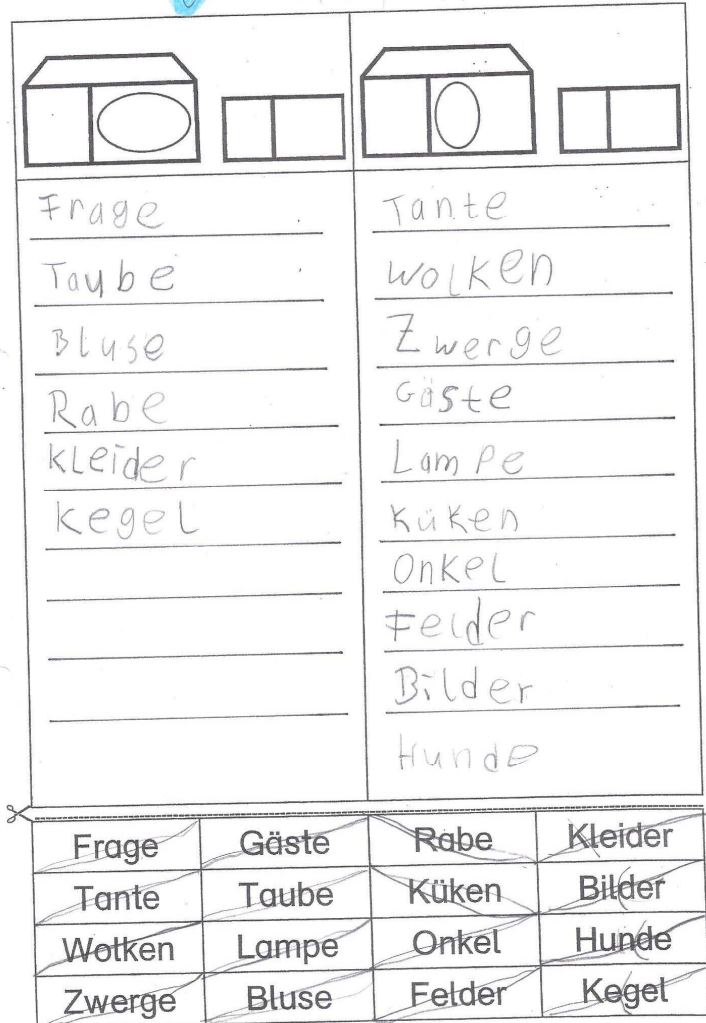 Frage
Taube
Bluse
Rabe
Kleider
Kegel
Tante
Wolken
Zwerge
Gäste
Lampe
Küken
Onkel
Felder
Bilder
Hunde
Frage Gäste Rabe Kleider
Tante Taube Küken Bilder
Wolken Lampe Onkel Hunde
Zwerge Bluse Felder Kegel